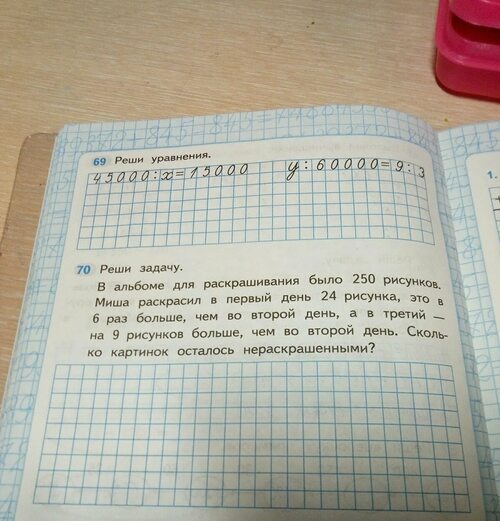 69 Реши уравнения.
45000:x=15000 y:60000=9:3
70 Реши задачу.
В альбоме для раскрашивания было 250 рисунков.
Миша раскрасил в первый день 24 рисунка, это в
6 раз больше, чем во второй день, а в третий —
на 9 рисунков больше, чем во второй день. Сколь-
ко картинок осталось нераскрашенными?
1.